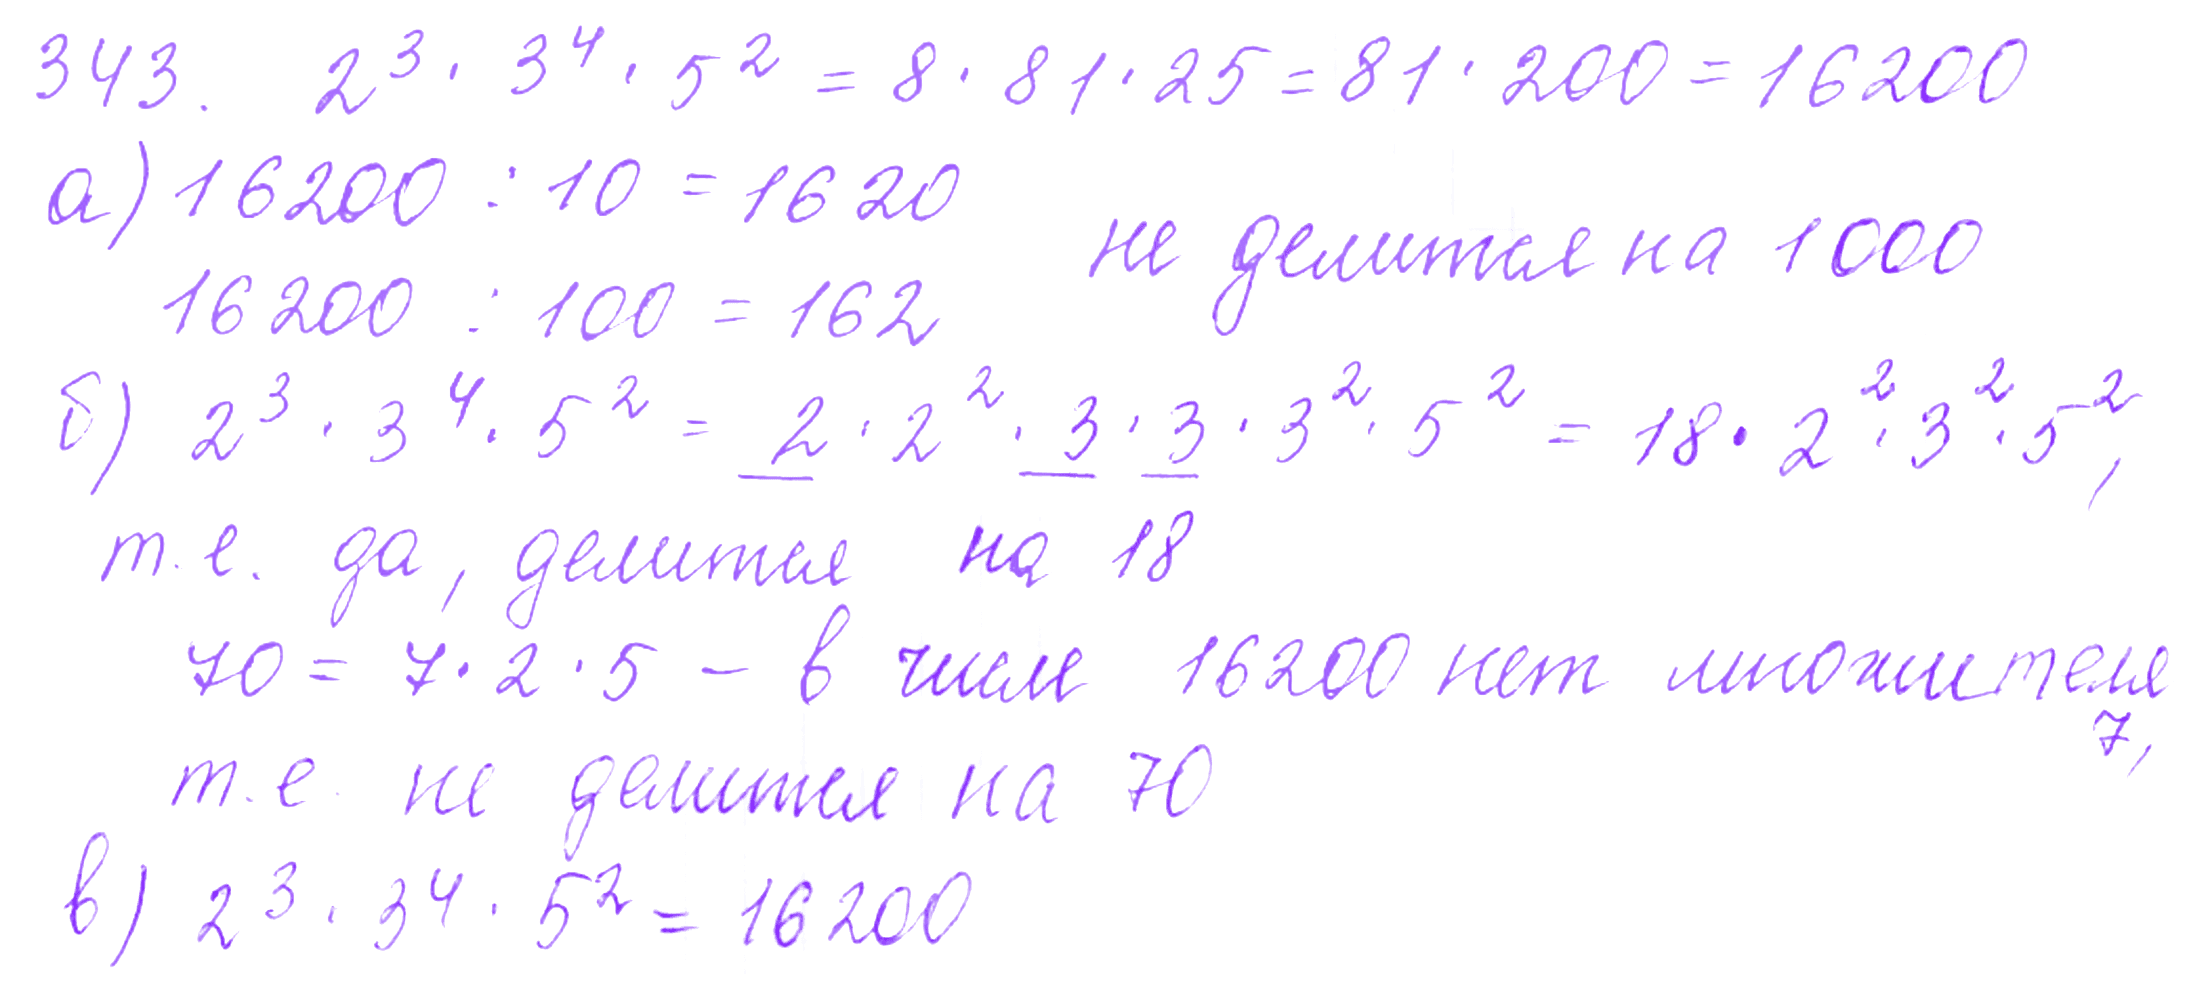 343. 2³ · 3⁴ · 5² = 8 · 81 · 25 = 81 · 200 = 16200
а) 16200 : 10 = 1620
не делится на 1000
16200 : 100 = 162
б) 2³ · 3⁴ · 5² = 2 · 2² · 3 · 3 · 3² · 5² = 18 · 2² · 3² · 5²,
т.е. да, делится на 18
70 = 7 · 2 · 5 – в числе 16200 нет множителя
7,
т.е. не делится на 70
в) 2³ · 3⁴ · 5² = 16200